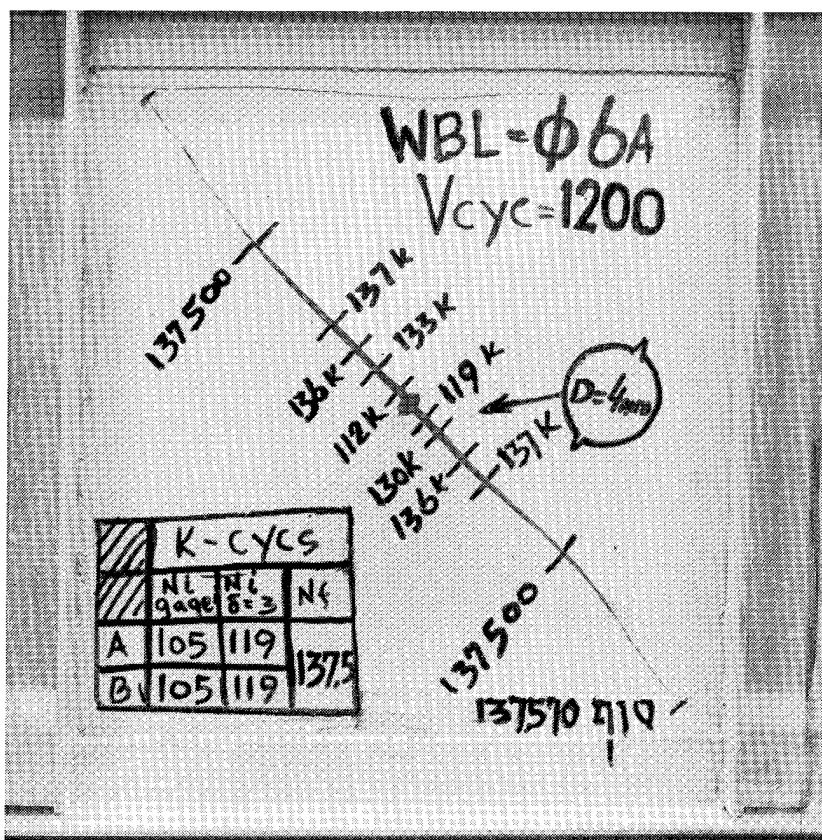 WBL=φ6A
Vcyc=1200
137500
137K
136K
133K
112K
119K
D=4mm
130K
136K
137K
137500
137570
K-CYCS
Ni gage
Ni δ=3
Nf
A 105 119 137.5
B 105 119